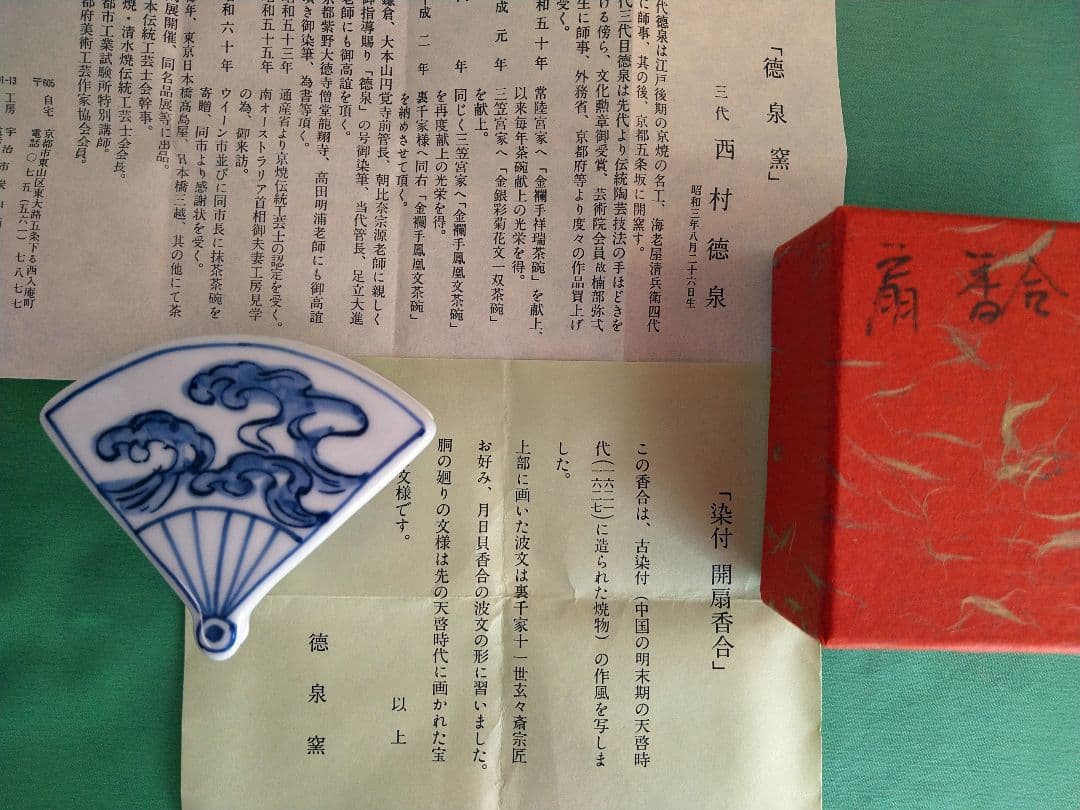 「德泉窯」
三代 西村德泉
昭和三年八月二十六日生
代德泉は江戸後期の京焼の名工、海老屋清兵衛四代
に師事、其の後、京都五条坂に開窯す。
代三代目德泉は先代より伝統陶芸技法の手ほどきを
ける傍ら、文化勲章御受賞、芸術院会員故楠部弥弌
生に師事、外務省、京都府等より度々の作品買上げ
受く。
和五十年 常陸宮家へ「金襴手祥瑞茶碗」を献上、
以来毎年茶碗献上の光栄を得。
成元年 三笠宮家へ「金銀彩菊花文一双茶碗」
を献上。
年 同じく三笠宮家へ「金襴手鳳凰文茶碗」
を再度献上の光栄を得。
成二年 裏千家様へ同右「金襴手鳳凰文茶碗」
を納めさせて頂く。
鎌倉、大本山円覚寺前管長、朝比奈宗源老師に親しく
御指導賜り「德泉」の号御染筆、当代管長、足立大進
老師にも御高誼を頂く。
京都紫野大徳寺僧堂龍翔寺、高田明浦老師にも御高誼
頂き御染筆、為書等頂く。
昭和五十三年 通産省より京焼伝統工芸士の認定を受く。
昭和五十五年 南オーストラリア首相御夫妻工房見学
の為、御来訪。
和六十年 ウイーン市並びに同市長に抹茶茶碗を
寄贈、同市より感謝状を受く。
年、東京日本橋高島屋、日本橋三越、其の他にて茶
展開催、同名品展等に出品。
本伝統工芸士会幹事。
焼・清水焼伝統工芸士会会長。
都市工業試験所特別講師。
都府美術工芸作家協会会員。
〒605 自宅 京都市東山区東大路五条下る西入庵町
電話〇七五(五六一)七八七七
1-13 工房 宇治市炭山
「染付 開扇香合」
この香合は、古染付(中国の明末期の天啓時
代(一六二一〜一六二七)に造られた焼物)の作風を写しま
した。
上部に画いた波文は裏千家十一世玄々斎宗匠
お好み、月日貝香合の波文の形に習いました。
胴の廻りの文様は先の天啓時代に画かれた宝
文様です。
以上
德泉窯
扇香合